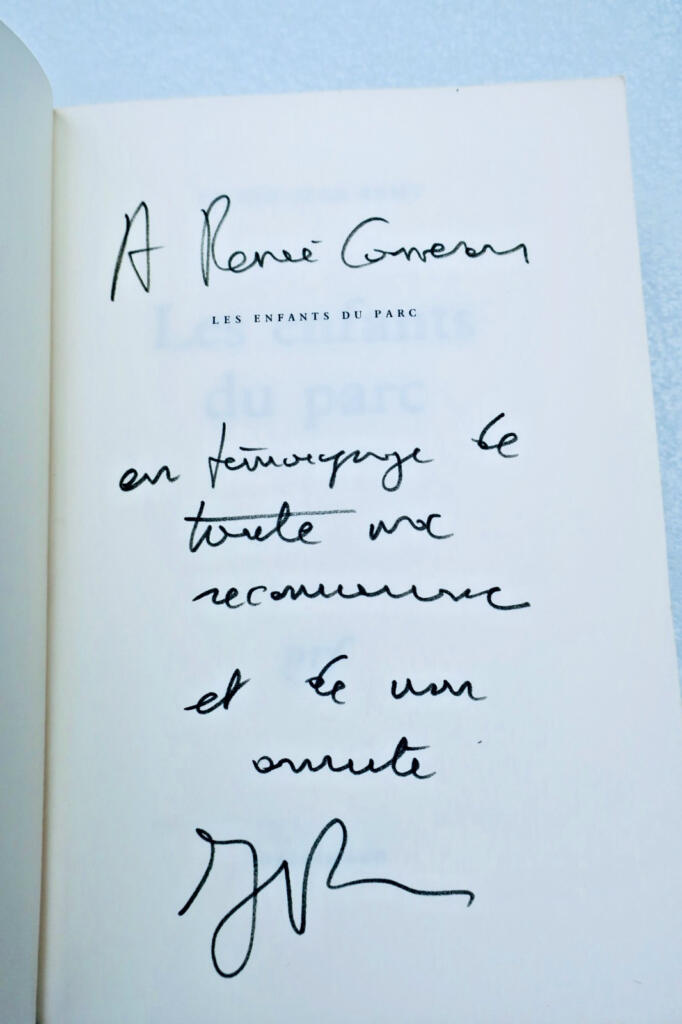 A Renée
LES ENFANTS DU PARC
en témoignage de
toute ma
reconnaissance
et de mon
amitié
Les enfants
du parc